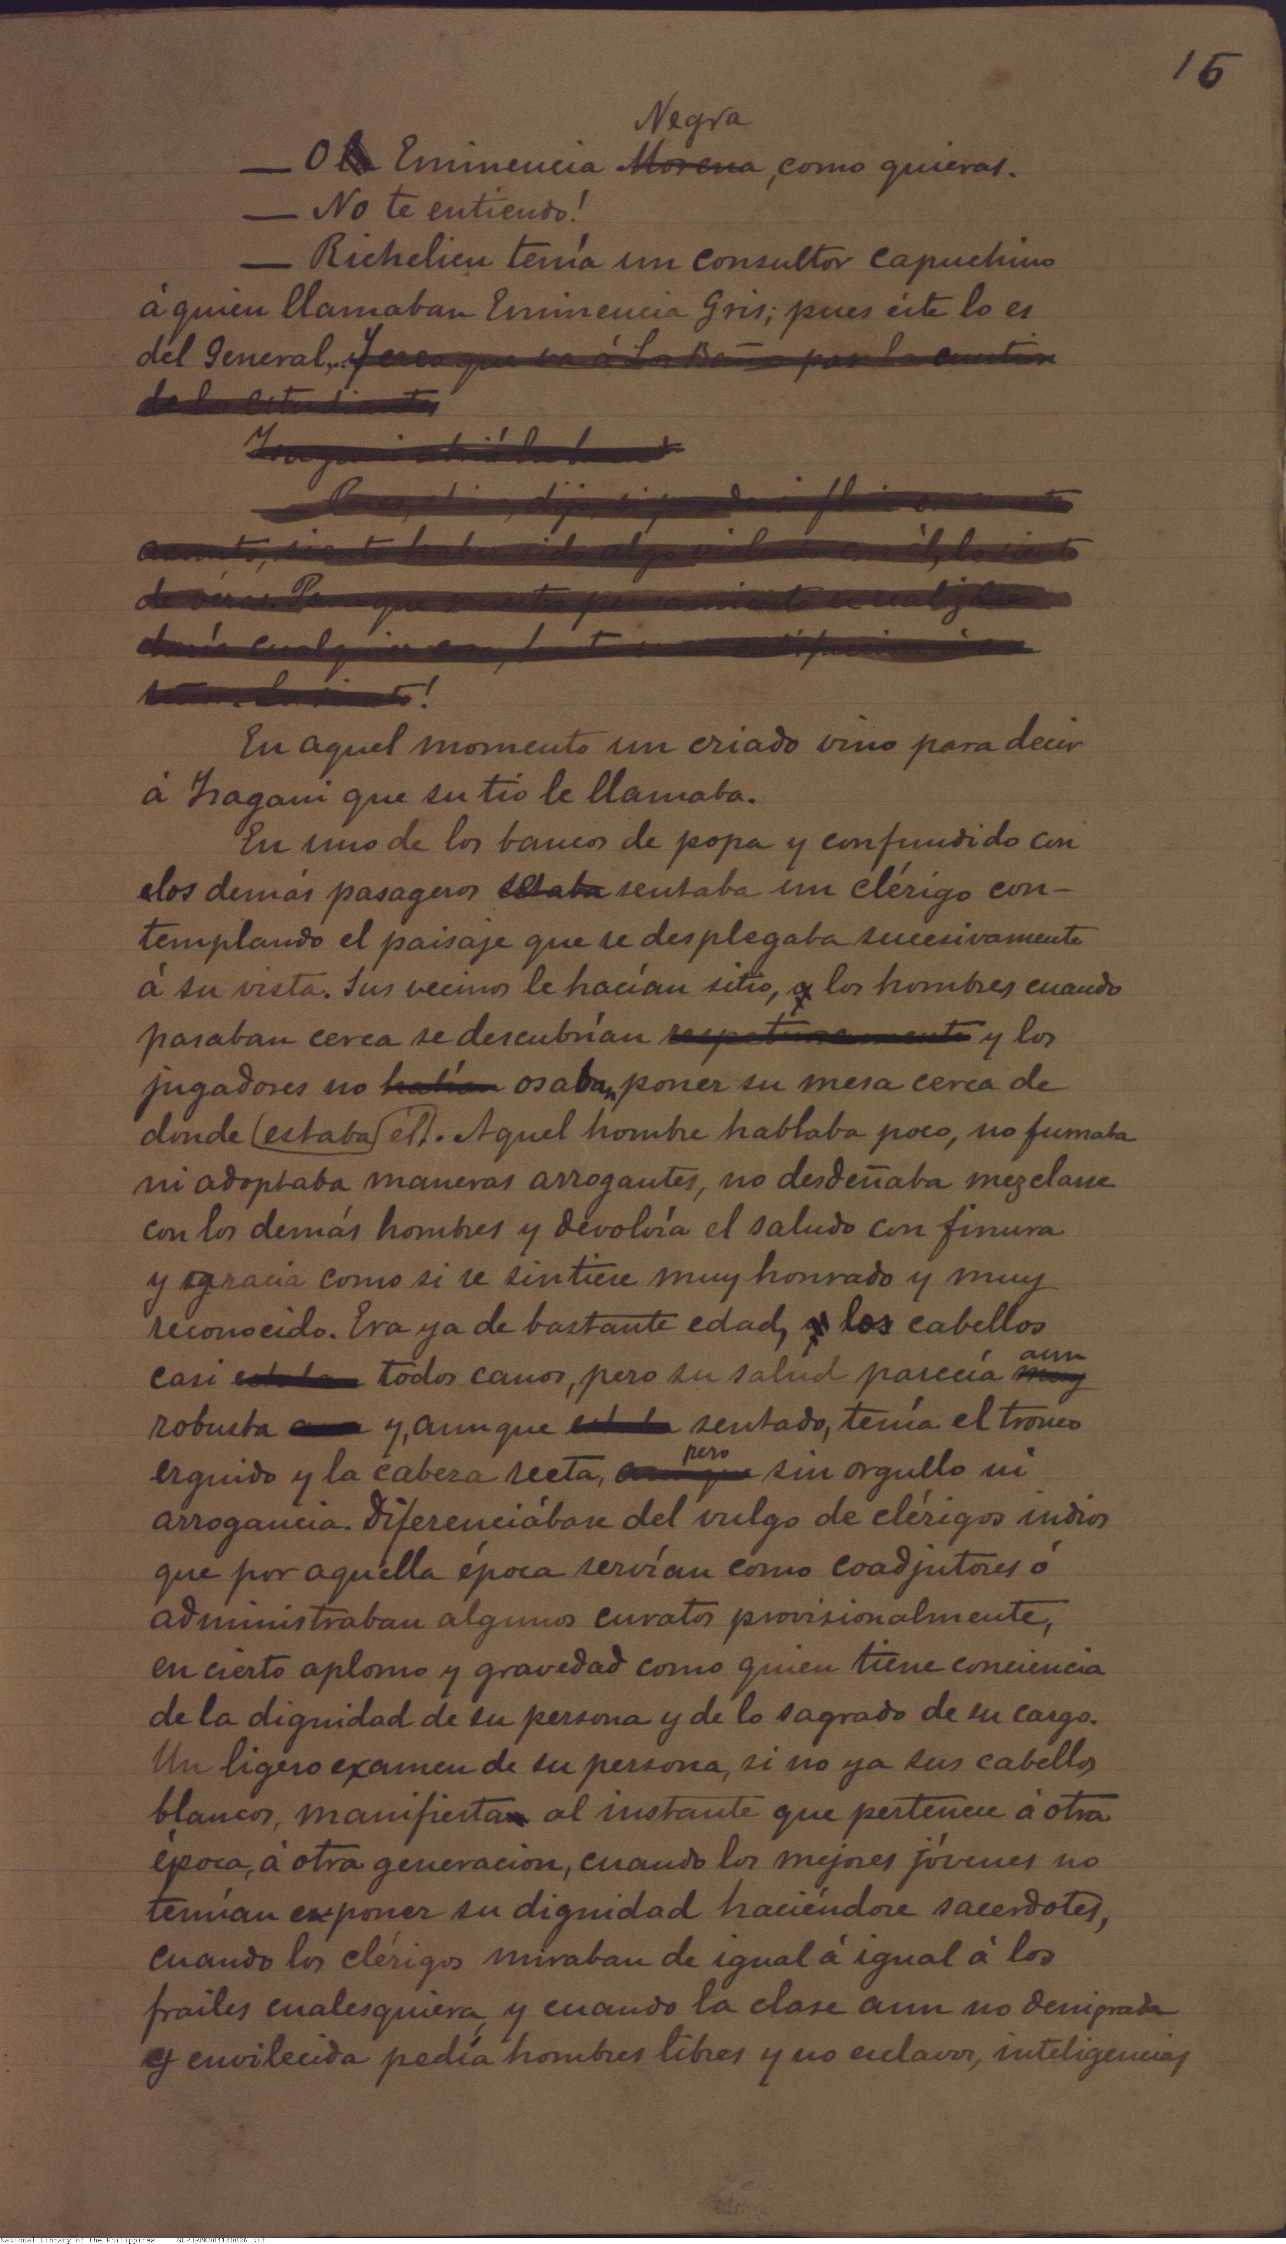 15
Negra
— O la Eminencia Morena, como quieras.
— No te entiendo!
— Richelieu tenía un consultor capuchino
á quien llamaban Eminencia Gris; pues éste lo es
del General... Y creo que va á Los Baños por la cuestion
de los estudiantes
Isagani
— dijo, si
asunto, siento haber sido algo violento con él, lo siento
de véras. Para que nuestro pensamiento se realize
daría cualquier cosa, hasta
!
En aquel momento un criado vino para decir
á Isagani que su tío le llamaba.
En uno de los bancos de popa y confundido con
los demás pasageros estaba sentaba un clérigo con-
templando el paisaje que se desplegaba sucesivamente
á su vista. Sus vecinos le hacían sitio, y los hombres cuando
pasaban cerca se descubrían respetuosamente y los
jugadores no habían osaban poner su mesa cerca de
donde (estaba) él). Aquel hombre hablaba poco, no fumaba
ni adoptaba maneras arrogantes, no desdeñaba mezclarse
con los demás hombres y devolvía el saludo con finura
y gracia como si se sintiese muy honrado y muy
reconocido. Era ya de bastante edad, y los cabellos
casi estaban todos canos, pero su salud parecía muy
aun
robusta aun y, aunque estaba sentado, tenía el tronco
erguido y la cabeza recta, aunque pero sin orgullo ni
arrogancia. Diferenciábase del vulgo de clérigos indios
que por aquella época servían como coadjutores ó
administraban algunos curatos provisionalmente,
en cierto aplomo y gravedad como quien tiene conciencia
de la dignidad de su persona y de lo sagrado de su cargo.
Un ligero examen de su persona, si no ya sus cabellos
blancos, manifiesta al instante que pertenece á otra
época, á otra generacion, cuando los mejores jóvenes no
temían exponer su dignidad haciéndose sacerdotes,
cuando los clérigos miraban de igual á igual á los
frailes cualesquiera, y cuando la clase aun no denigrada
y envilecida pedía hombres libres y no esclavos, inteligencias